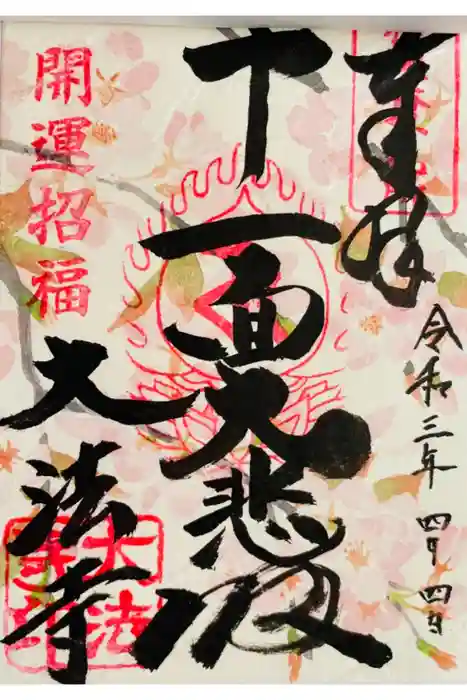 奉拝
令和三年 四月 四日
十一面大悲殿
開運招福
大法寺
大法
寺印